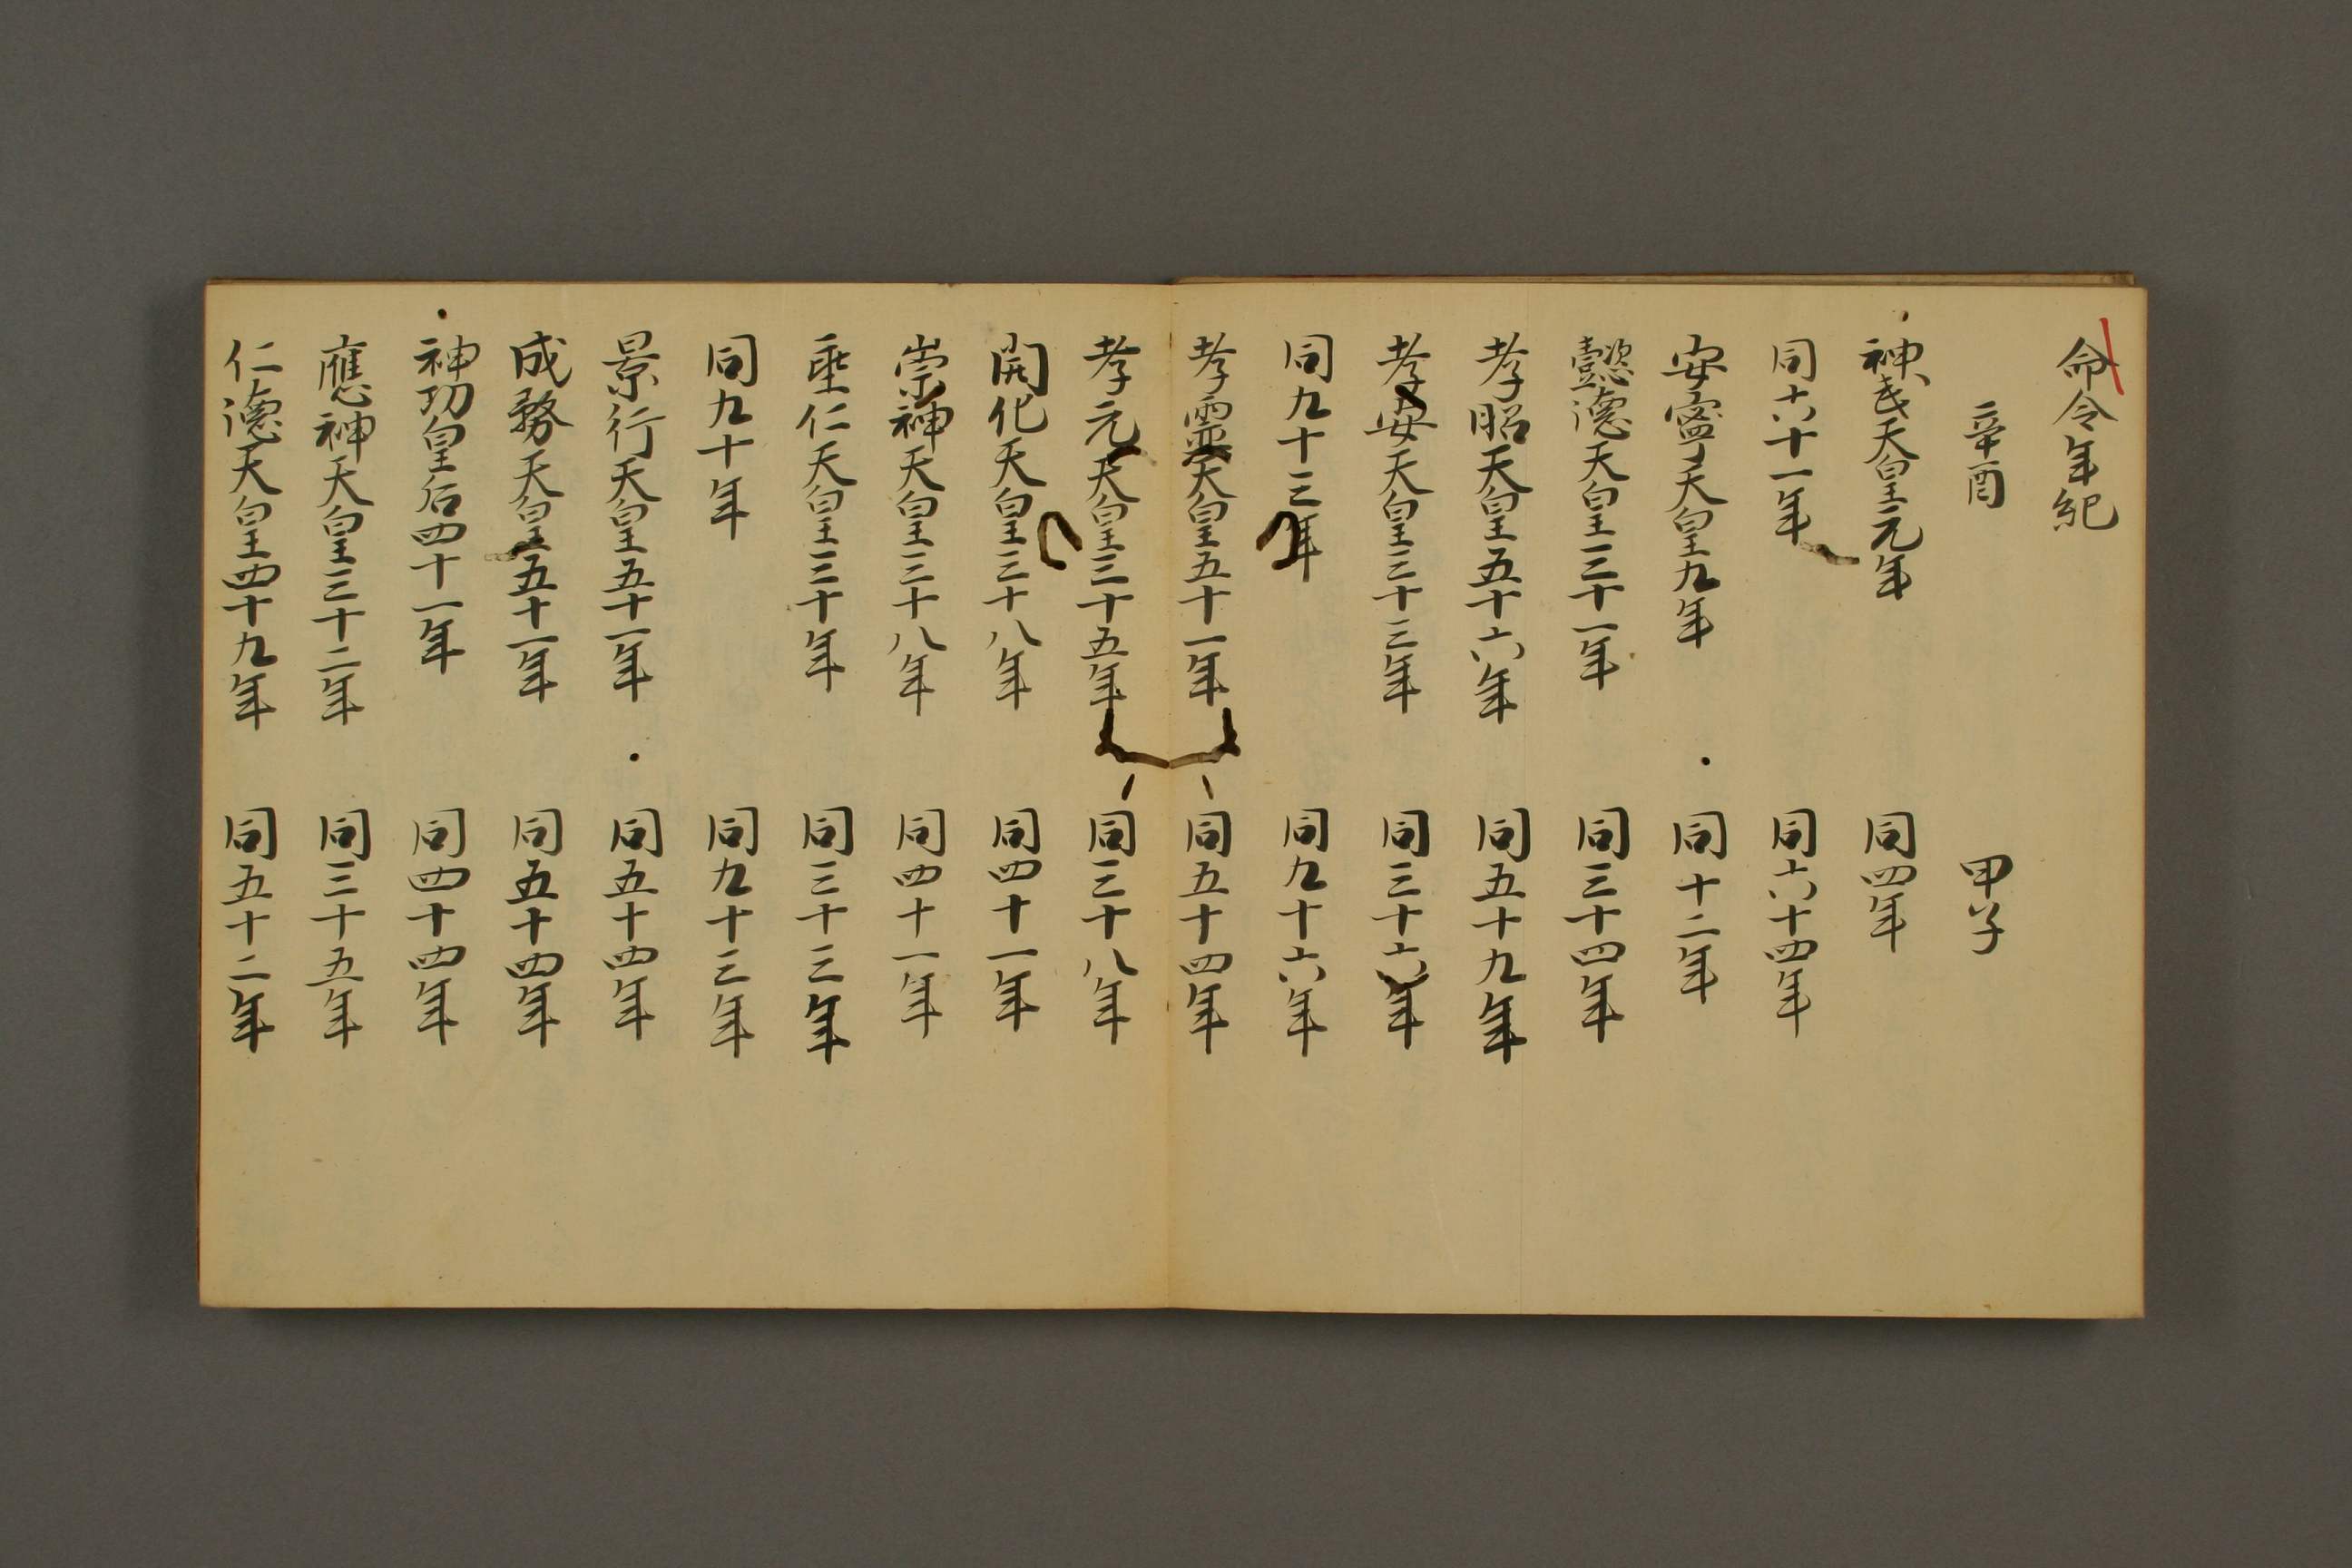 命令年紀
辛酉 甲子
神武天皇元年 同四年
同六十一年 同六十四年
安寧天皇九年 同十二年
懿德天皇三十一年 同三十四年
孝昭天皇五十六年 同五十九年
孝安天皇三十三年 同三十六年
同九十三年 同九十六年
孝靈天皇五十一年 同五十四年
孝元天皇三十五年 同三十八年
開化天皇三十八年 同四十一年
崇神天皇三十八年 同四十一年
垂仁天皇三十年 同三十三年
同九十年 同九十三年
景行天皇五十一年 同五十四年
成務天皇五十一年 同五十四年
神功皇后四十一年 同四十四年
應神天皇三十二年 同三十五年
仁德天皇四十九年 同五十二年